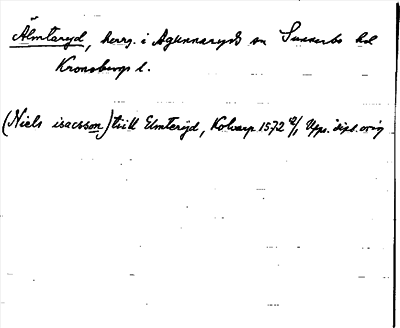 Älmtaryd, herrg. i Agunnaryds sn Sunnerbo hd
Kronobergs l.
(Niels isacsson) till Elmteryd, Kolvarp 1572 12/1 Upps. dipl. orig